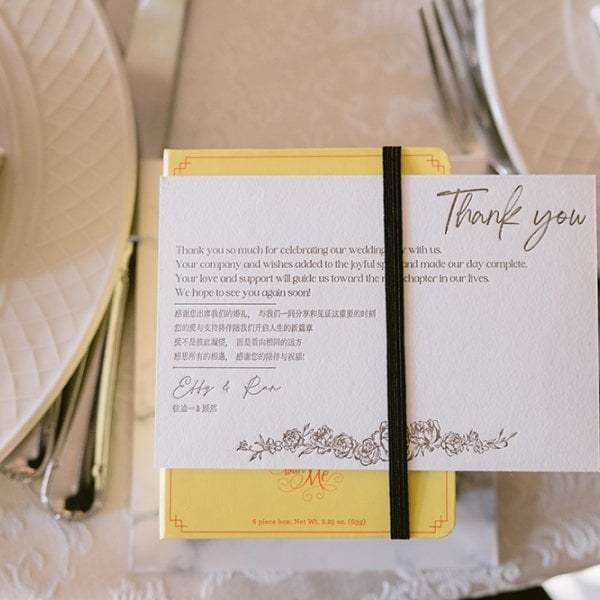 Thank you
Thank you so much for celebrating our wedding day with us.
Your company and wishes added to the joyful sp and made our day complete.
Your love and support will guide us toward the chapter in our lives.
We hope to see you again soon!
感谢您出席我们的婚礼， 与我们一同分享和见证这重要的时刻
您的爱与支持将伴随我们开启人生的新篇章
爱不是彼此凝望， 而是看向相同的远方
感恩所有的相遇， 感谢您的陪伴与祝福!
Effy & Ran
with
Me
6 piece box: Net Wt. 2.25 oz. (63g)